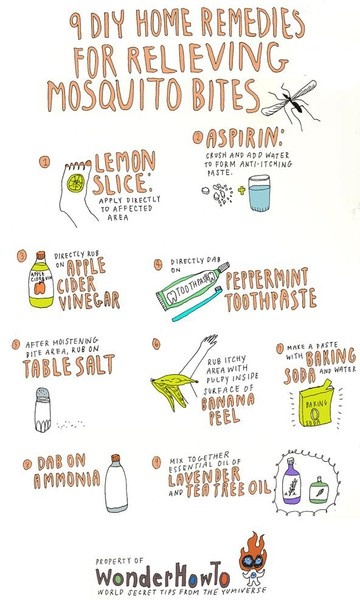 9 DIY HOME REMEDIES
FOR RELIEVING
MOSQUITO BITES
1
LEMON
SLICE:
APPLY DIRECTLY
TO AFFECTED
AREA
2
ASPIRIN:
CRUSH AND ADD WATER
TO FORM ANTI-ITCHING
PASTE.
3
DIRECTLY RUB
ON APPLE
CIDER
VINEGAR
APPLE
CIDER
4
DIRECTLY DAB
ON
PEPPERMINT
TOOTHPASTE
TOOTHPASTE
5
AFTER MOISTENING
BITE AREA, RUB ON
TABLE SALT
6
RUB ITCHY
AREA WITH
PULPY INSIDE
SURFACE OF
BANANA
PEEL
7
MAKE A PASTE
WITH BAKING
SODA AND WATER
BAKING
SODA
8
DAB ON
AMMONIA
9
MIX TOGETHER
ESSENTIAL OIL OF
LAVENDER
AND TEA TREE OIL
PROPERTY OF
WonderHowTo
WORLD SECRET TIPS FROM THE YUMIVERSE